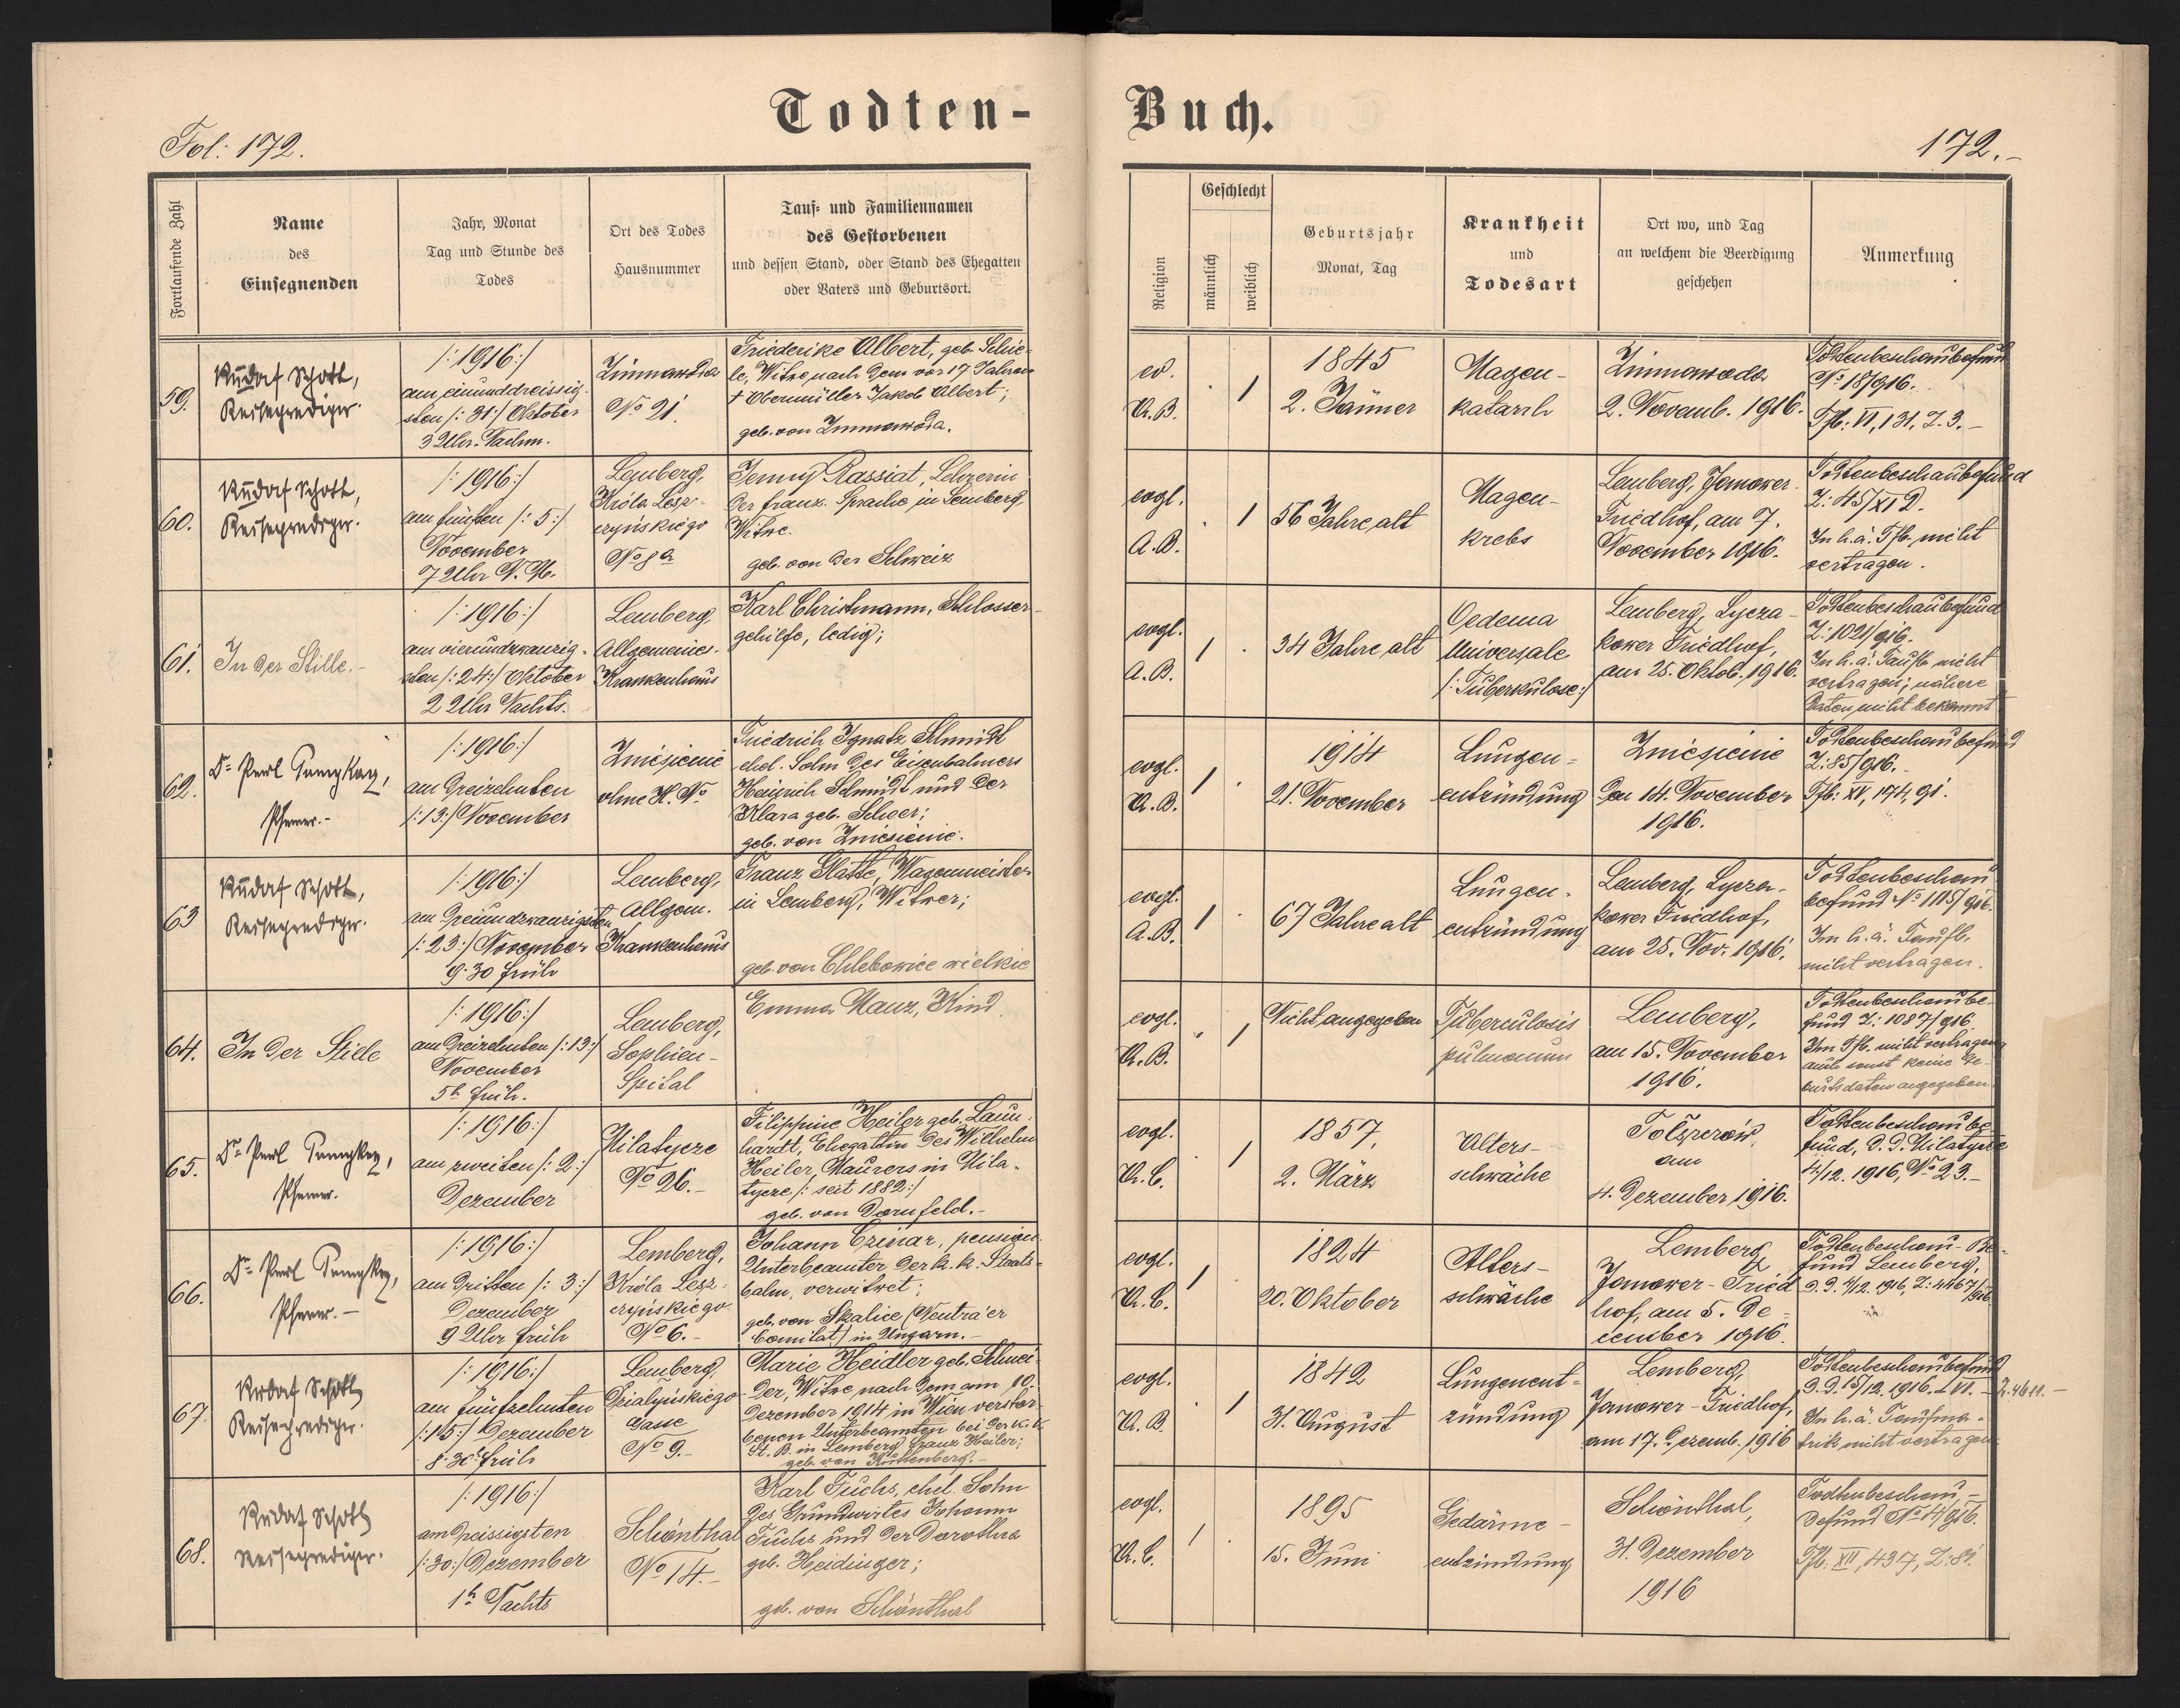 Todten-
Buch.
Fol: 172.
172.-
Fortlaufende Zahl
Name
des
Einsegnenden
Jahr, Monat
Tag und Stunde des
Todes
Ort des Todes
Hausnummer
Tauf- und Familiennamen
des Gestorbenen
und dessen Stand, oder Stand des Ehegatten
oder Vaters und Geburtsort.
Religion
Geschlecht
männlich
weiblich
Geburtsjahr
Monat, Tag
Krankheit
und
Todesart
Ort wo, und Tag
an welchem die Beerdigung
geschehen
Anmerkung
59.
Rudolf Schott,
Reiseprediger.
/:1916:/
am einunddreissig-
sten /:31:/ Oktober
3 Uhr. Nachm.
Zimnawoda
No 21.
Friederike Albert, geb. Schie-
le, Witwe nach dem vor 17 Jahren
† Obermüller Jakob Albert;
geb. von Zimnawoda.
ev.
A.B.
. 1
1845
2. Jänner
Magen-
katarrh
Zimnawoda
2. Novemb. 1916.
Todtenbeschaubefund
No 18/916.
Tfb: VI, 131, Z. 3.-
60.
Rudolf Schott,
Reiseprediger.
/:1916:/
am fünften /:5:/
November
7 Uhr N. M.
Lemberg,
Króla Lesz-
czyńskiego
No 8a
Jenny Rassiat, Lehrerin
der franz. Sprache in Lemberg,
Witwe.
geb. von der Schweiz
evgl.
A.B.
. 1
56 Jahre alt
Magen-
krebs
Lemberg, Janower-
Friedhof, am 7.
November 1916.
Todtenbeschaubefund
Z: 45/XI D.
In h.ä. Tfb. nicht
vertragen.
61.
In der Stille.-
/:1916:/
am vierundzwanzig-
sten /:24:/ Oktober
2 Uhr Nachts.
Lemberg,
Allgemeines-
Krankenhaus
Karl Christmann, Schlosser-
gehilfe, ledig;
evgl.
A.B.
1 .
34 Jahre alt
Oedema
Universale
/:Tuberkulose:/
Lemberg, Lycza-
kower Friedhof,
am 25. Oktob. 1916.
Todtenbeschaubefund
Z: 1021/916.
In h.ä. Taufb. nicht
vertragen; nähere
Daten nicht bekannt
62.
Dr Pfarrer.-
/:1916:/
am dreizehnten
/:13:/ November
Zniesienie
ohne H. No
Friedrich Ignatz Schmidt
ehel. Sohn des Eisenbahners
Heinrich Schmidt und der
Klara geb. Scheer;
geb. von Zniesienie.
evgl.
A.B.
1 .
1914
21. November
Lungen-
entzündung
Zniesienie
den 14. November
1916.
Todtenbeschaubefund
Z: 85/916.-
Tfb: XV, 174, 91.
63
Rudolf Schott,
Reiseprediger.
/:1916:/
am dreiundzwanzigsten
/:23:/ November
9.30 früh
Lemberg,
Allgem.
Krankenhaus
Franz Glatte, Wagenmeister
in Lemberg, Witwer;
geb. von Chlebowice wielkie
evgl.
A.B.
1 .
67 Jahre alt
Lungen-
entzündung
Lemberg, Lycza-
kower Friedhof,
am 25. Nov. 1916.
Todtenbeschau-
befund No 1115/916.
Im h.ä. Taufb.
nicht vertragen.
64.
In der Stille
/:1916:/
am dreizehnten /:13:/
November
5h früh.
Lemberg,
Sophien-
Spital
Emma Manz, Kind
evgl.
A.B.
. 1
Nicht angegeben
Tuberculosis
pulmonum
Lemberg,
am 15. November
1916.
Todtenbeschaube-
fund Z: 1087/916
Im Tfb. nicht vertragen
auch sonst keine Ge-
burtsdaten angegeben.
65.
Dr Pfarrer.
/:1916:/
am zweiten /:2:/
Dezember
Milatycze
No 26.-
Filippine Heiler geb. Laun-
hardt, Ehegattin des Wilhelm
Heiler, Maurers in Mila-
tycze /: seit 1882:/
geb. von Dornfeld.-
evgl.
A.C.
. 1
1857.
2. März
Alters-
schwäche
Tołszczów,
am
4. Dezember 1916.
Todtenbeschaube-
fund, d.d. Milatycze
4/12. 1916, No 23.-
66.
Dr Pfarrer.-
/:1916:/
am dritten /:3:/
Dezember
9 Uhr früh
Lemberg,
Króla Lesz-
czyńskiego
No 6.-
Johann Czinar, pension.
Unterbeamter der k. k. Staats-
bahn, verwitwet;
geb. von Skalice (Neutra'er
Comitat) in Ungarn.-
evgl.
A.C.
1 .
1824
20. Oktober
Alters-
schwäche
Lemberg,
Janower-Fried-
hof, am 5. De-
cember 1916.
Todtenbeschau-Be-
fund Lemberg,
d.d. 4/12. 1916, Z: 4467/916
67.
Rudolf Schott
Reiseprediger.
/:1916:/
am fünfzehnten
/:15:/ Dezember
8.30 früh
Lemberg,
Dzialyńskiego
Gasse
No 9.-
Marie Heidler geb. Schnei-
der, Witwe nach dem am 10.
Dezember 1914 in Wien verstor-
benen Unterbeamten bei der k. k.
St. B. in Lemberg Franz Heiler;
evgl.
A.B.
. 1
1842
31. August
Lungenent-
zündung
Lemberg,
Janower-Friedhof,
am 17. Dezemb. 1916
Todtenbeschaubefund
d.d. 15/12. 1916. L VI. - Z. 4611.-
In h.ä. Taufma-
trik nicht vertragen.
68.
Rudolf Schott
Reiseprediger.
/:1916:/
am dreissigsten
/:30:/ Dezember
1h Nachts
Schönthal
No 14.-
Karl Fuchs, ehel. Sohn
des Grundwirtes Johann
Fuchs und der Dorothea
geb. Heidinger;
geb. von Schönthal
evgl.
A.C.
1 .
1895
15. Juni
Gedärme-
entzündung
Schönthal,
31. Dezember
1916
Todtenbeschau-
befund No 14/916.
Tfb. XII, 437, Z: 81.